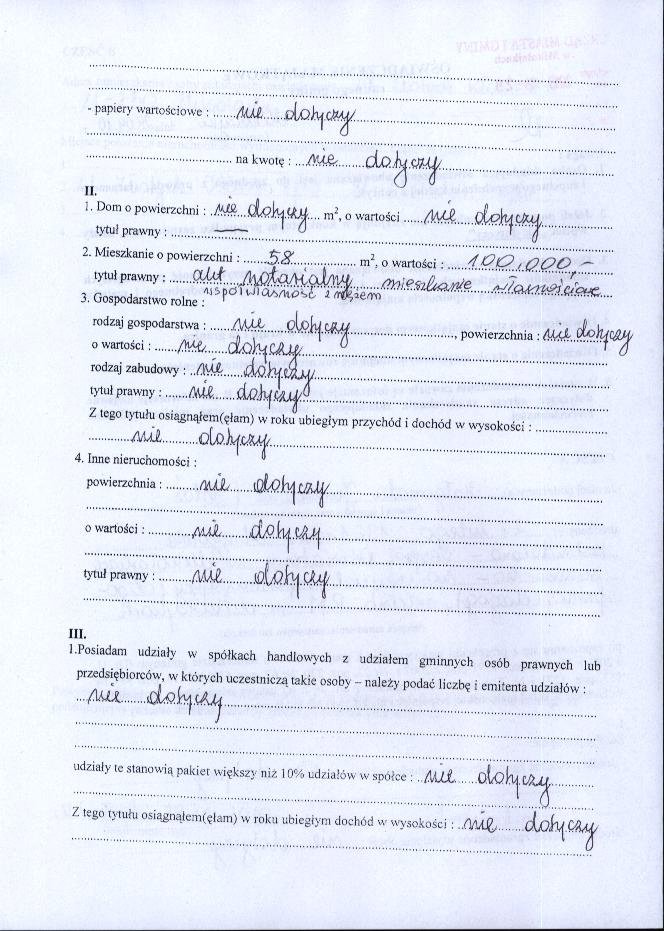 - papiery wartościowe : nie dotyczy
na kwotę : nie dotyczy
II.
1. Dom o powierzchni : nie dotyczy m², o wartości nie dotyczy
tytuł prawny : —
2. Mieszkanie o powierzchni : 58 m², o wartości : 100.000,-
tytuł prawny : akt notarialny mieszkanie własnościowe
współwłasność z mężem
3. Gospodarstwo rolne :
rodzaj gospodarstwa : nie dotyczy, powierzchnia : nie dotyczy
o wartości : nie dotyczy
rodzaj zabudowy : nie dotyczy
tytuł prawny : nie dotyczy
Z tego tytułu osiągnąłem(ęłam) w roku ubiegłym przychód i dochód w wysokości :
nie dotyczy
4. Inne nieruchomości :
powierzchnia : nie dotyczy
o wartości : nie dotyczy
tytuł prawny : nie dotyczy
III.
1.Posiadam udziały w spółkach handlowych z udziałem gminnych osób prawnych lub
przedsiębiorców, w których uczestniczą takie osoby – należy podać liczbę i emitenta udziałów :
nie dotyczy
udziały te stanowią pakiet większy niż 10% udziałów w spółce : nie dotyczy
Z tego tytułu osiągnąłem(ęłam) w roku ubiegłym dochód w wysokości : nie dotyczy